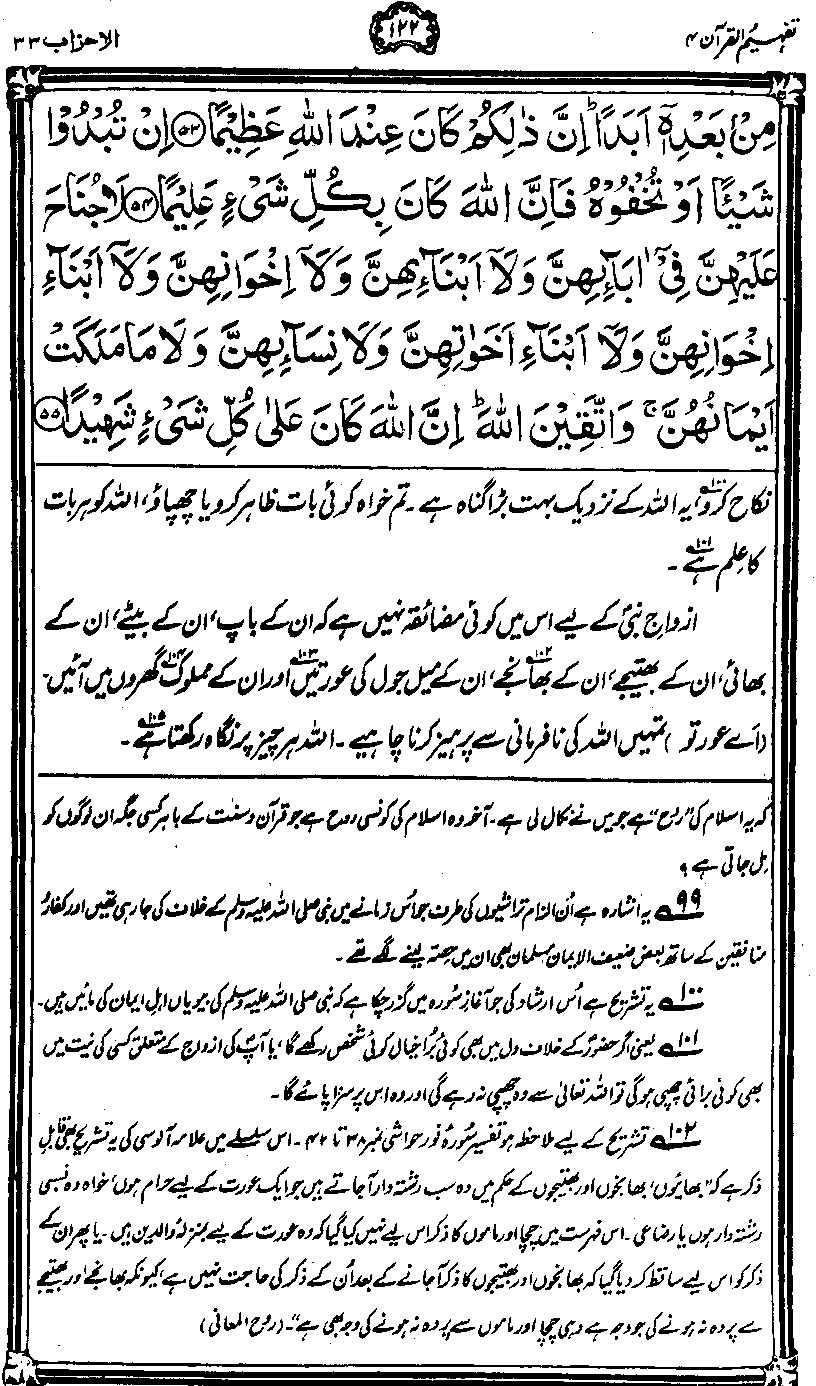 تفہیم القرآن ۴
۱۲۲
الاحزاب ۳۳
مِنْۢ بَعْدِهٖۤ اَبَدًا ؕ اِنَّ ذٰلِكُمْ كَانَ عِنْدَ اللّٰهِ عَظِیْمًا ﴿۵۳﴾ اِنْ تُبْدُوْا
شَیْـًٔا اَوْ تُخْفُوْهُ فَاِنَّ اللّٰهَ كَانَ بِكُلِّ شَیْءٍ عَلِیْمًا ﴿۵۴﴾ لَا جُنَاحَ
عَلَیْهِنَّ فِیْۤ اٰبَآىِٕهِنَّ وَلَاۤ اَبْنَآىِٕهِنَّ وَلَاۤ اِخْوَانِهِنَّ وَلَاۤ اَبْنَآءِ
اِخْوَانِهِنَّ وَلَاۤ اَبْنَآءِ اَخَوٰتِهِنَّ وَلَا نِسَآىِٕهِنَّ وَلَا مَا مَلَكَتْ
اَیْمَانُهُنَّ ۚ وَاتَّقِیْنَ اللّٰهَ ؕ اِنَّ اللّٰهَ كَانَ عَلٰی كُلِّ شَیْءٍ شَهِیْدًا ﴿۵۵﴾
نکاح کرو۱۰۰، یہ اللہ کے نزدیک بہت بڑا گناہ ہے۔ تم خواہ کوئی بات ظاہر کرو یا چھپاؤ، اللہ کو ہر بات
کا علم ہے۱۰۱۔
ازواجِ نبیؐ کے لیے اس میں کوئی مضائقہ نہیں ہے کہ ان کے باپ، ان کے بیٹے، ان کے
بھائی، ان کے بھتیجے، ان کے بھانجے۱۰۲، ان کے میل جول کی عورتیں۱۰۳ اور ان کے مملوک۱۰۴ گھروں میں آئیں۔
(اے عورتو) تمہیں اللہ کی نافرمانی سے پرہیز کرنا چاہیے۔ اللہ ہر چیز پر نگاہ رکھتا ہے۱۰۵۔
کہ یہ اسلام کی ”روح“ ہے جو میں نے نکال لی ہے۔ آخر وہ اسلام کی کونسی روح ہے جو قرآن و سنت کے باہر کسی جگہ ان لوگوں کو
مل جاتی ہے؟
۹۹ یہ اشارہ ہے اُن الزام تراشیوں کی طرف جو اُس زمانے میں نبی صلی اللہ علیہ وسلم کے خلاف کی جا رہی تھیں اور کفار و
منافقین کے ساتھ بعض ضعیف الایمان مسلمان بھی ان میں حصہ لینے لگے تھے۔
۱۰۰ یہ تشریح ہے اُس ارشاد کی جو آغازِ سورہ میں گزر چکا ہے کہ نبی صلی اللہ علیہ وسلم کی بیویاں اہلِ ایمان کی مائیں ہیں۔
۱۰۱ یعنی اگر حضورؐ کے خلاف دل میں بھی کوئی بُرا خیال کوئی شخص رکھے گا، یا آپؐ کی ازواج کے متعلق کسی کی نیت میں
بھی کوئی برائی چھپی ہوگی تو اللہ تعالیٰ سے وہ چھپی نہ رہے گی اور وہ اس پر سزا پائے گا۔
۱۰۲ تشریح کے لیے ملاحظہ ہو تفسیر سُورۂ نور حواشی نمبر ۳۸ تا ۴۲۔ اس سلسلے میں علامہ آلوسی کی یہ تشریح بھی قابلِ
ذکر ہے کہ ”بھائیوں، بھانجوں اور بھتیجوں کے حکم میں وہ سب رشتہ دار آ جاتے ہیں جو ایک عورت کے لیے حرام ہوں، خواہ وہ نسبی
رشتہ دار ہوں یا رضاعی۔ اس فہرست میں چچا اور ماموں کا ذکر اس لیے نہیں کیا گیا کہ وہ عورت کے لیے بمنزلۂ والدین ہیں۔ یا پھر ان کے
ذکر کو اس لیے ساقط کر دیا گیا کہ بھانجوں اور بھتیجوں کا ذکر آ جانے کے بعد اُن کے ذکر کی حاجت نہیں ہے، کیونکہ بھانجے اور بھتیجے
سے پردہ نہ ہونے کی جو وجہ ہے وہی چچا اور ماموں سے پردہ نہ ہونے کی وجہ بھی ہے“۔ (روح المعانی)